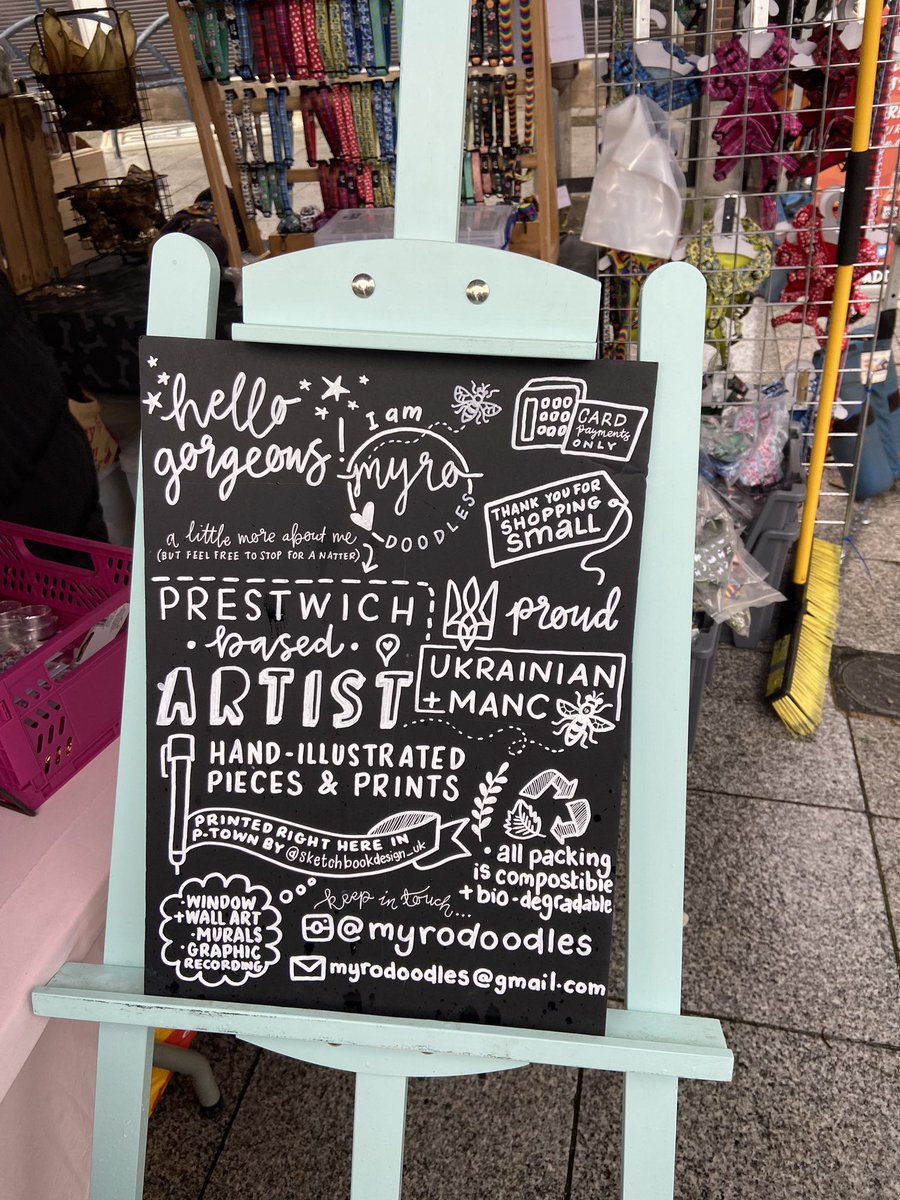 hello
gorgeous!
I am
myro
DOODLES
CARD
payments
ONLY
THANK YOU FOR
SHOPPING
small
a little more about me
(BUT FEEL FREE TO STOP FOR A NATTER)
PRESTWICH
• based •
ARTIST
proud
UKRAINIAN
+ MANC
HAND-ILLUSTRATED
PIECES & PRINTS
PRINTED RIGHT HERE IN
P-TOWN BY @sketchbookdesign_uk
• all packing
is compostible
+ bio-degradable
• WINDOW
+ WALL ART
• MURALS
• GRAPHIC
RECORDING
keep in touch...
@myrodoodles
myrodoodles@gmail.com